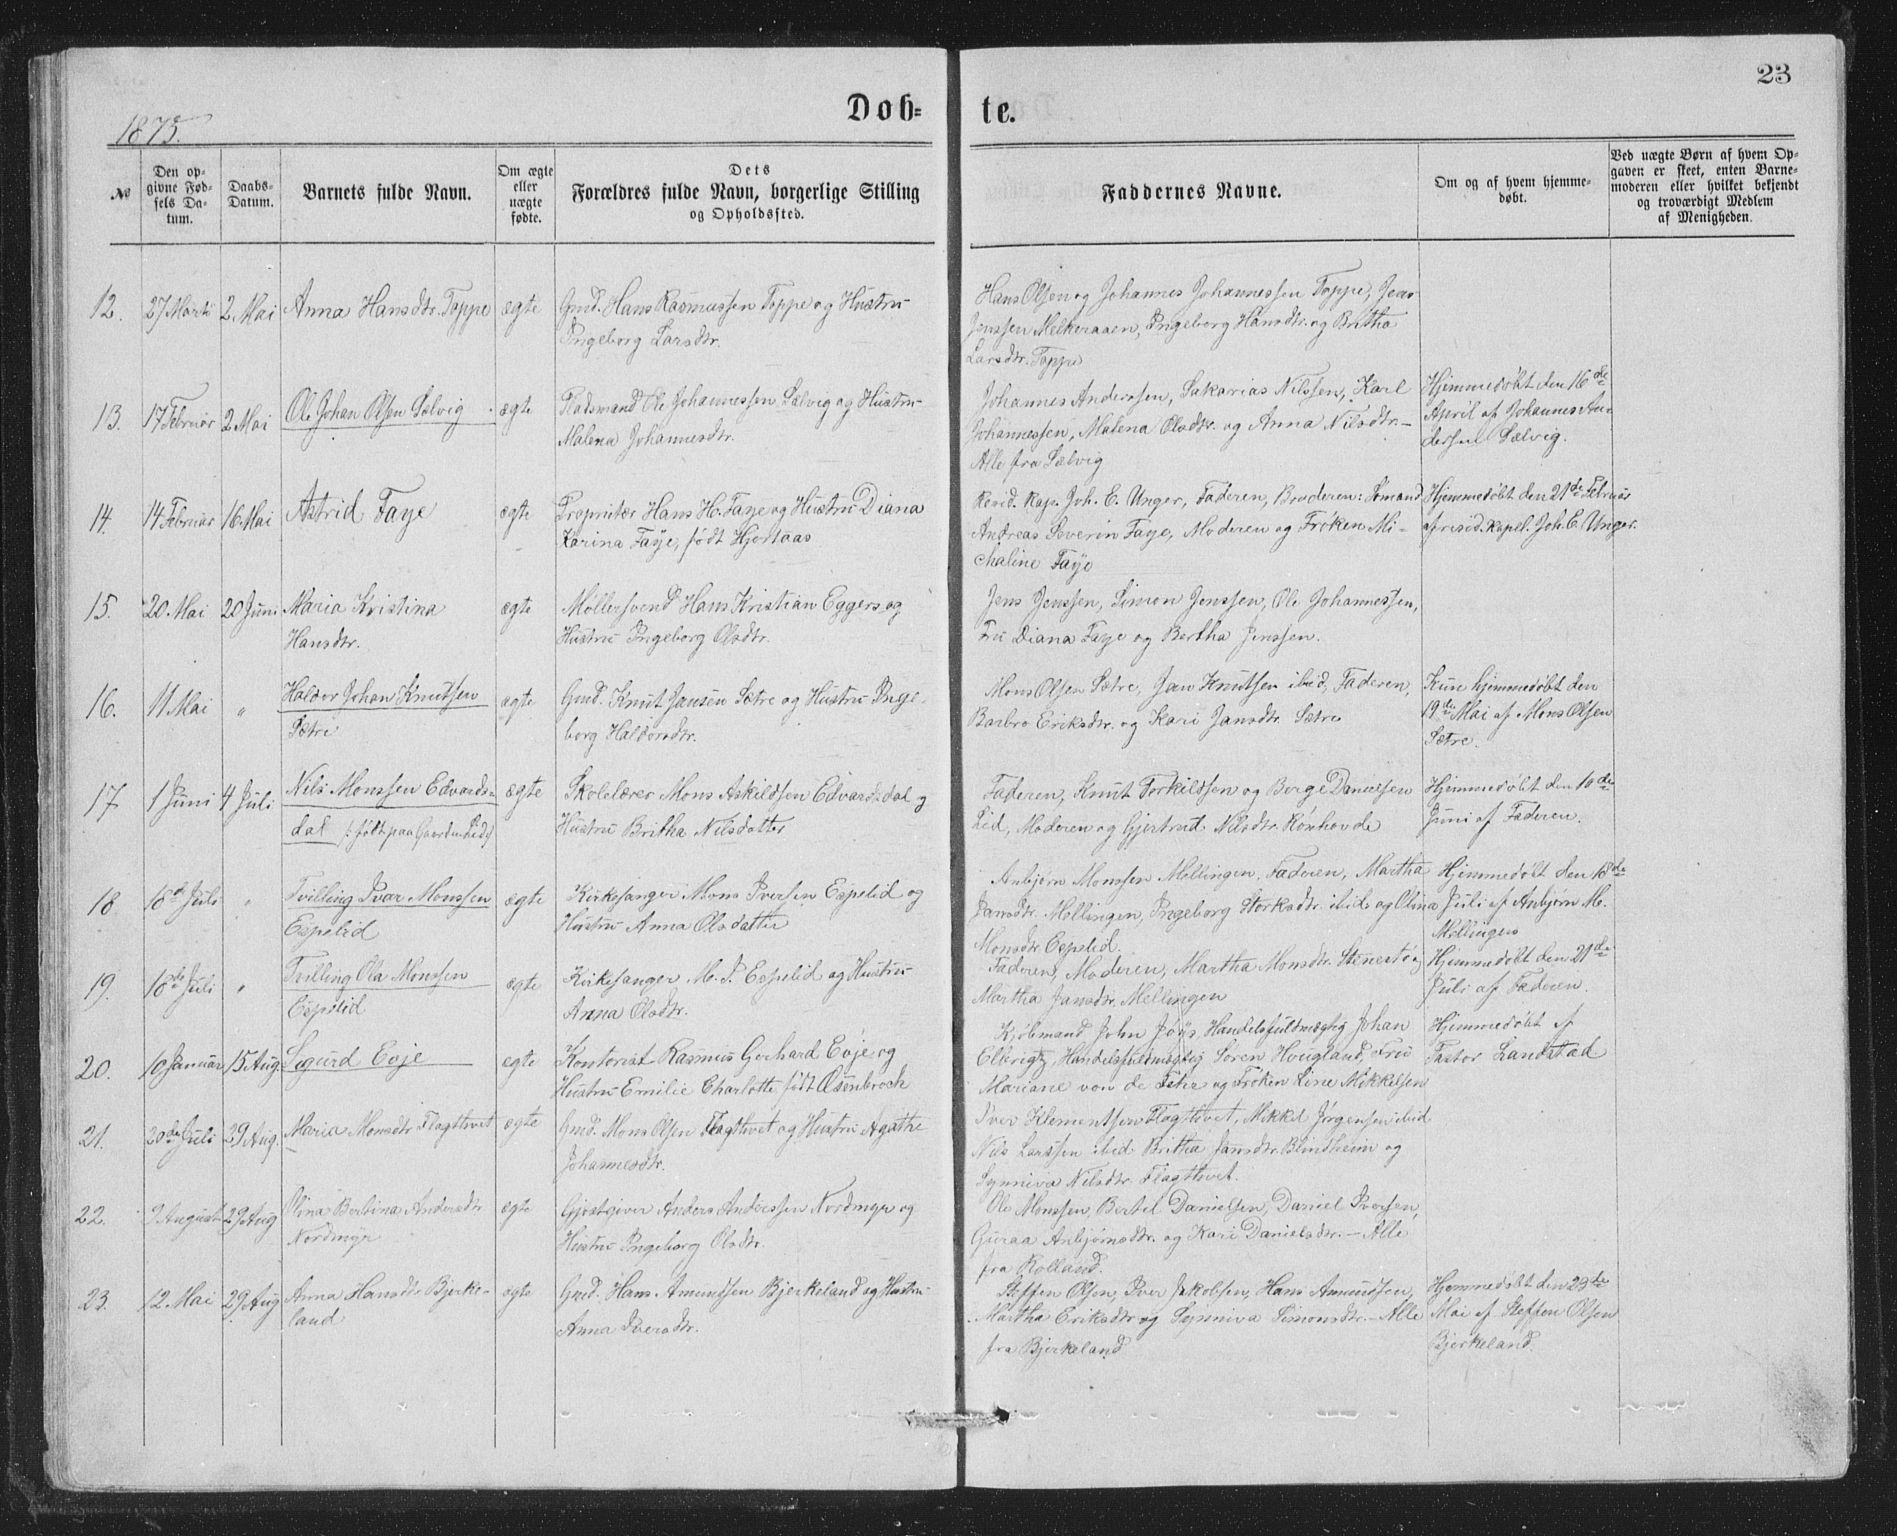 23
Døb=
te.
1875.
No
Den op=
givne Fød=
sels Da=
tum.
Daabs=
Datum.
Barnets fulde Navn.
Om ægte
eller
uægte
fødte.
Dets
Forældres fulde Navn, borgerlige Stilling
og Opholdssted.
Faddernes Navne.
Om og af hvem hjemme=
døbt.
Ved uægte Børn af hvem Op=
gaven er skeet, enten Barne=
moderen eller hvilket bekjendt
og troværdigt Medlem
af Menigheden.
12. 27 Marti 2 Mai Anna Hansdtr. Toppe ægte
Gmd. Hans Rasmussen Toppe og Hustru
Ingeborg Larsdtr.
Hans Olsen og Johannes Johannessen Toppe, Jens
Jenssen Melkeraaen, Ingeborg Hansdtr. og Britha
Larsdtr. Toppe
13. 17 Februar 2 Mai Ole Johan Olsen Sælvig ægte
Pladsmand Ole Johannessen Sælvig og Hustru
Malena Johannesdtr.
Johannes Anderssen, Sakarias Nilssen, Karl
Johannessen, Malena Olsdtr. og Anna Nilsdtr. –
Alle fra Sælvig
Hjemmedøbt den 16de
April af Johannes An-
dersen Sælvig.
14. 14 Februar 16 Mai Astrid Faye ægte
Proprietær Hans H. Faye og Hustru Diana
Karina Faye, født Hjortaas
Resid. Kap. Joh. E. Unger, Faderen, Broderen: Sømand
Andreas Severin Faye, Moderen og Frøken Mi-
chaline Faye
Hjemmedøbt den 21de Februar
af resid. Kapel. Joh. E. Unger.
15. 20 Mai 20 Juni Maria Kristina
Hansdtr.
ægte
Møllersvend Hans Kristian Eggers og
Hustru Ingeborg Olsdtr.
Jens Jenssen, Simon Jenssen, Ole Johannessen,
Fru Diana Faye og Bertha Jenssen.
16. 11 Mai " Haldor Johan Knutsen
Sætre
ægte
Gmd. Knut Jansen Sætre og Hustru Inge-
borg Haldorsdtr.
Mons Olsen Sætre, Jan Knutsen ibid, Faderen,
Barbro Eriksdtr. og Kari Jansdtr. Sætre
Kun hjemmedøbt den
19de Mai af Mons Olsen
Sætre.
17. 1 Juni 4 Juli Nils Monssen Edvards-
dal /: født paa Gaarden Lid :/
ægte
Skolelærer Mons Askildsen Edvardsdal og
Hustru Britha Nilsdatter
Faderen, Knut Torkildsen og Børge Danielsen
Lid, Moderen og Gjertrud Nilsdtr. Rønhovde
Hjemmedøbt den 10de
Juni af Faderen.
18. 18de Juli " Tvilling Ivar Monssen
Espelid
ægte
Kirkesanger Mons Iversen Espelid og
Hustru Anna Olsdatter
Anbjørn Monssen Mellingen, Faderen, Martha
Jansdtr. Mellingen, Ingeborg Størksdtr. ibid. og Olina
Monsdtr. Espelid.
Hjemmedøbt den 18de
Juli af Anbjørn M.
Mellingen
19. 18de Juli " Tvilling Ola Monssen
Espelid
ægte
Kirkesanger M. I. Espelid og Hustru
Anna Olsdtr.
Faderen, Moderen, Martha Monsdtr. Stenestø og
Martha Jansdtr. Mellingen
Hjemmedøbt den 21de
Juli af Faderen.
20. 10 Januar 15 Aug. Sigurd Eoje ægte
Kontorist Rasmus Gerhard Eoje og
Hustru Emilie Charlotte født Osenbroch
Kjøbmand John Joys, Handelsfuldmægtig Johan
Elbrigtz, Handelsfuldmægtig Søren Hougland, Fru
Mariane von de Fehr og Frøken Line Mikkelsen
Hjemmedøbt af
Pastor Landstad
21. 20de Juli 29 Aug. Maria Monsdtr Flagthvet ægte
Gmd. Mons Olsen Flagthvet og Hustru Agathe
Johannesdtr.
Iver Klementsen Flagthvet, Mikkel Jørgensen ibid
Nils Larssen ibid Britha Jansdtr. Blindheim og
Synniva Nilsdtr. Flagthvet.
22. 9 August 29 Aug Olina Bertina Andersdtr
Nordmyr
ægte
Gjestgiver Anders Anderssen Nordmyr og
Hustru Ingeborg Olsdtr.
Ole Monssen, Bertel Danielsen, Daniel Iversen,
Guraa Anbjørnsdtr. og Kari Danielsdtr. – Alle
fra Rolland.
23. 12 Mai 29 Aug Anna Hansdtr Bjerke-
land
ægte
Gmd. Hans Amundsen Bjerkeland og Hustru
Anna Iversdtr.
Steffen Olsen, Iver Jakobsen, Hans Amundsen,
Martha Eriksdtr og Synniva Simonsdtr. – Alle
fra Bjerkeland
Hjemmedøbt den 23de
Mai af Steffen Olsen
Bjerkeland.